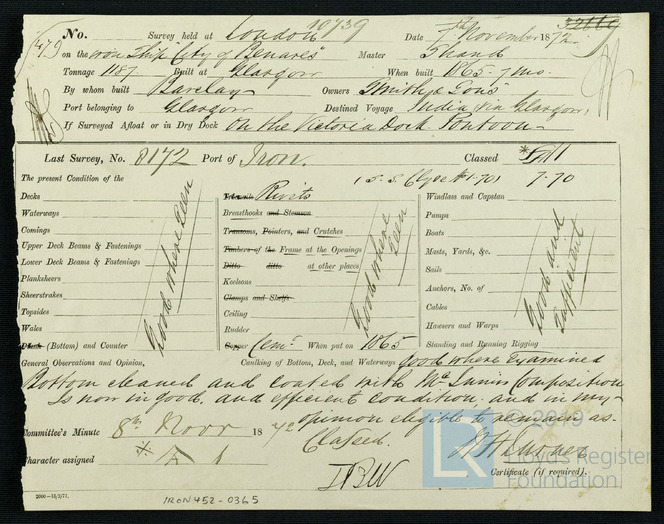 10739
No. Survey held at London Date 7th November 1872.
on the iron Ship "City of Benares" Master Thand
Tonnage 1187 Built at Glasgow When built 1865. 7mo.
By whom built Barclay Owners Smith & Sons
Port belonging to Glasgow Destined Voyage India via Glasgow,
If Surveyed Afloat or in Dry Dock On the Victoria Dock Pontoon
Last Survey, No. 8172 Port of Iron. Classed
The present Condition of the Rivets 7.70
Decks Breasthooks and Stemson Windlass and Capstan
Waterways Transoms, Pointers, and Crutches Pumps
Comings Timbers of the Frame at the Openings Boats
Upper Deck Beams & Fastenings Ditto ditto at other places Masts, Yards, &c.
Lower Deck Beams & Fastenings Keelsons Sails
Planksheers Clamps and Shelfs Anchors, No. of
Sheerstrakes Ceiling Cables
Topsides Rudder Hawsers and Warps
Wales Copper Cemt When put on 1865 Standing and Running Rigging
Good where seen
Good where seen
Good and Sufficient
Plank (Bottom) and Counter
General Observations and Opinion, Caulking of Bottom, Deck, and Waterways Good where Examined
Bottom cleaned and coated with McInnis Composition
Is now in good, and efficient condition, and in my
opinion eligible to remain as
Classed.
Committee's Minute 8th Novr 1872
Character assigned A 1
Certificate (if required).
© 2019
Lloyd's Register
Foundation
2000—13/2/71.
IRON452-0365